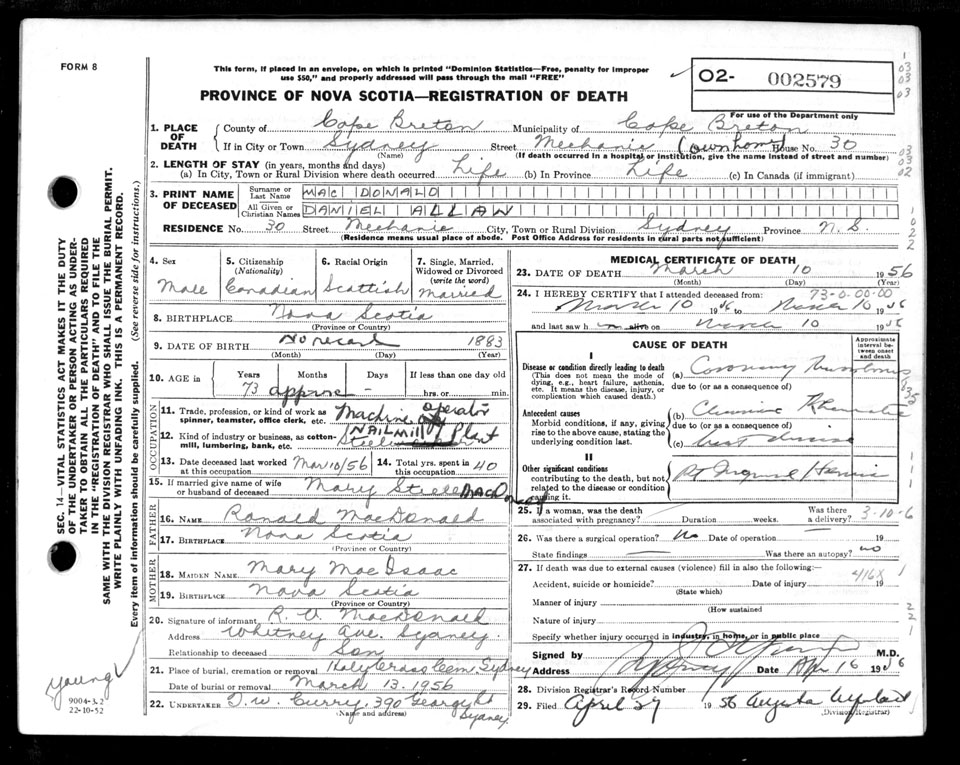 FORM 8
This form, if placed in an envelope, on which is printed "Dominion Statistics—Free, penalty for improper
use $50," and properly addressed will pass through the mail "FREE"
02- 002579
For use of the Department only
PROVINCE OF NOVA SCOTIA—REGISTRATION OF DEATH
1. PLACE OF DEATH
County of Cape Breton Municipality of Cape Breton
If in City or Town Sydney Street Mechanic (own home) House No. 30
(Name) (If death occurred in a hospital or institution, give the name instead of street and number)
2. LENGTH OF STAY (in years, months and days)
(a) In City, Town or Rural Division where death occurred Life (b) In Province Life (c) In Canada (if immigrant)
3. PRINT NAME OF DECEASED
Surname or Last Name MAC DONALD
All Given or Christian Names DANIEL ALLAN
RESIDENCE No. 30 Street Mechanic City, Town or Rural Division Sydney Province N. S.
(Residence means usual place of abode. Post Office Address for residents in rural parts not sufficient)
4. Sex Male
5. Citizenship (Nationality) Canadian
6. Racial Origin Scottish
7. Single, Married, Widowed or Divorced (write the word) Married
8. BIRTHPLACE Nova Scotia
(Province or Country)
9. DATE OF BIRTH No record 1883
(Month) (Day) (Year)
10. AGE in Years Months Days If less than one day old
73 approx - hrs. or min.
OCCUPATION
11. Trade, profession, or kind of work as spinner, teamster, office clerk, etc. Machine operator
12. Kind of industry or business, as cotton-mill, lumbering, bank, etc. NAIL MILL Steel Plant
13. Date deceased last worked at this occupation Mar 10/56
14. Total yrs. spent in this occupation 40
15. If married give name of wife or husband of deceased Mary Steele MacDonald
FATHER
16. NAME Ranald MacDonald
17. BIRTHPLACE Nova Scotia
(Province or Country)
MOTHER
18. MAIDEN NAME Mary MacIsaac
19. BIRTHPLACE Nova Scotia
(Province or Country)
20. Signature of informant R. V. MacDonald
Address Whitney Ave. Sydney.
Relationship to deceased Son
21. Place of burial, cremation or removal Holy Cross Cem. Sydney
Date of burial or removal March 13. 1956
22. UNDERTAKER T. W. Curry, 390 George St
(Name and address) Sydney.
MEDICAL CERTIFICATE OF DEATH
23. DATE OF DEATH March 10 1956
(Month) (Day) (Year)
73-0-00-00
24. I HEREBY CERTIFY that I attended deceased from:
March 10 1956 to March 10 1956
and last saw him alive on March 10 1956
CAUSE OF DEATH
Approximate interval between onset and death
I
Disease or condition directly leading to death
(This does not mean the mode of dying, e.g., heart failure, asthenia, etc. It means the disease, injury, or complication which caused death.)
(a) Coronary thrombosis
due to (or as a consequence of)
Antecedent causes
Morbid conditions, if any, giving rise to the above cause, stating the underlying condition last.
(b) Chronic Rheumatic
due to (or as a consequence of)
(c) heart disease
II
Other significant conditions
contributing to the death, but not related to the disease or condition causing it.
Rt Inguinal Hernia
25. If a woman, was the death associated with pregnancy? Duration weeks. Was there a delivery?
3-10-6
26. Was there a surgical operation? No Date of operation 19
State findings Was there an autopsy? no
27. If death was due to external causes (violence) fill in also the following:
416X
Accident, suicide or homicide? Date of injury 19
(State which)
Manner of injury
(How sustained)
Nature of injury
Specify whether injury occurred in industry, in home, or in public place
Signed by M.D.
Address Sydney Date Apr 16 1956
28. Division Registrar's Record Number
29. Filed April 27 1956 Augusta
(Division Registrar)
SEC. 14—VITAL STATISTICS ACT MAKES IT THE DUTY
OF THE UNDERTAKER OR PERSON ACTING AS UNDER-
TAKER TO OBTAIN ALL THE PARTICULARS REQUIRED
IN THE "REGISTRATION OF DEATH" AND TO FILE THE
SAME WITH THE DIVISION REGISTRAR WHO SHALL ISSUE THE BURIAL PERMIT.
WRITE PLAINLY WITH UNFADING INK. THIS IS A PERMANENT RECORD.
Every item of information should be carefully supplied. (See reverse side for instructions.)
young
9004-3.2
22-10-52